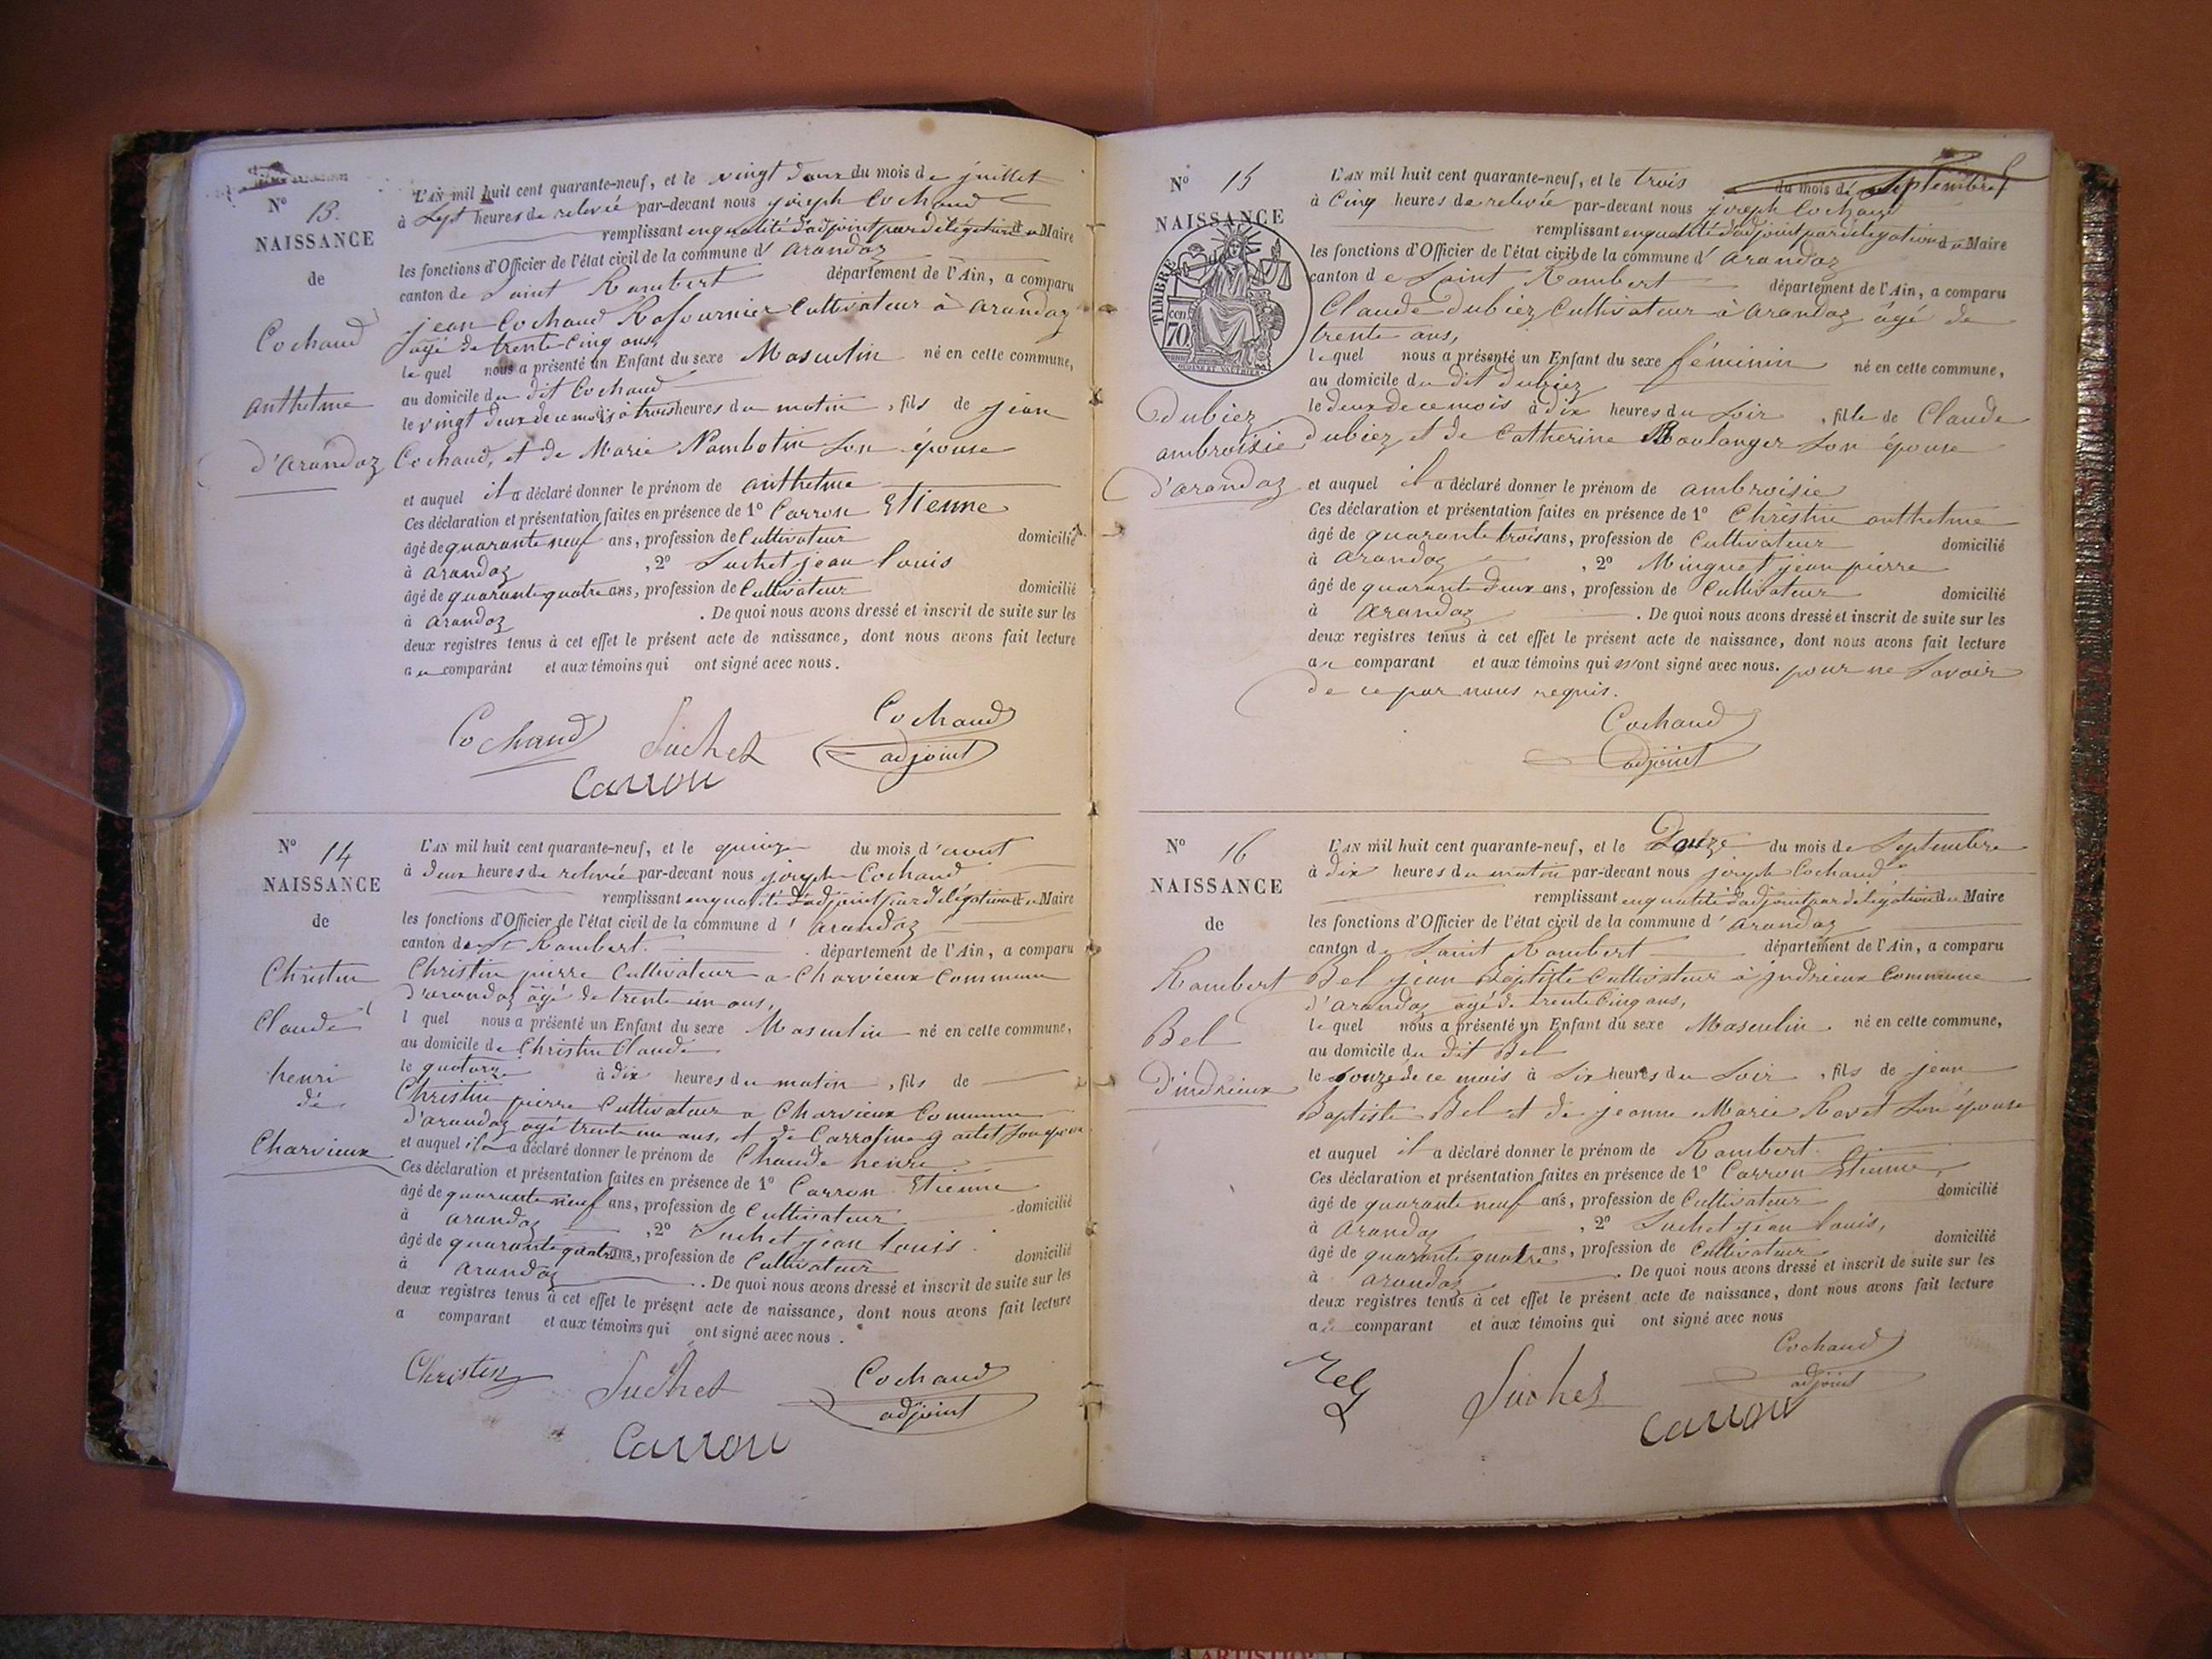 N° 13.
NAISSANCE
de
Cochaud
anthelme
d'arandaz
L'AN mil huit cent quarante-neuf, et le vingt deux du mois de juillet
à Sept heures de relevée par-devant nous joseph Cochaud
remplissant en qualité d'adjoint par délégation du Maire
les fonctions d'Officier de l'état civil de la commune d' arandaz
canton de Saint Rambert département de l'Ain, a comparu
jean Cochaud Rafournier Cultivateur à arandaz
âgé de trente Cinq ans,
lequel nous a présenté un Enfant du sexe Masculin né en cette commune,
au domicile du dit Cochaud
le vingt deux de ce mois à trois heures du matin, fils de jean
Cochaud, et de Marie Nambotin Son épouse
et auquel il a déclaré donner le prénom de anthelme
Ces déclaration et présentation faites en présence de 1° Carron Etienne
âgé de quarante neuf ans, profession de Cultivateur domicilié
à arandaz, 2° Suchet jean louis
âgé de quarante quatre ans, profession de Cultivateur domicilié
à arandaz. De quoi nous avons dressé et inscrit de suite sur les
deux registres tenus à cet effet le présent acte de naissance, dont nous avons fait lecture
au comparant et aux témoins qui ont signé avec nous.
Cochaud Suchet Cochaud
adjoint
Carron
N° 14
NAISSANCE
de
Christin
Claude
henri
de
Charvieux
L'AN mil huit cent quarante-neuf, et le quinze du mois d'aout
à deux heures de relevée par-devant nous joseph Cochaud
remplissant en qualité d'adjoint par délégation du Maire
les fonctions d'Officier de l'état civil de la commune d' arandaz
canton de St Rambert. département de l'Ain, a comparu
Christin pierre Cultivateur a Charvieux Commune
d'arandaz âgé de trente un ans,
l quel nous a présenté un Enfant du sexe Masculin né en cette commune,
au domicile de Christin Claude
le quatorze à dix heures du matin, fils de
Christin pierre Cultivateur a Charvieux Commune
d'arandaz agé trente un ans, et de Carroline
et auquel il a déclaré donner le prénom de Chaude henri
Ces déclaration et présentation faites en présence de 1° Carron Etienne
âgé de quarante neuf ans, profession de Cultivateur domicilié
à arandaz, 2° Suchet jean louis
âgé de quarante quatre ans, profession de Cultivateur domicilié
à arandaz. De quoi nous avons dressé et inscrit de suite sur les
deux registres tenus à cet effet le présent acte de naissance, dont nous avons fait lecture
a comparant et aux témoins qui ont signé avec nous.
Christin Suchet Cochaud
adjoint
Carron
N° 15
NAISSANCE
TIMBRE
70 cen
Dubiez
ambroisie
d'arandaz
L'AN mil huit cent quarante-neuf, et le trois du mois de Septembre
à Cinq heures de relevée par-devant nous joseph Cochaud
remplissant en qualité d'adjoint par délégation du Maire
les fonctions d'Officier de l'état civil de la commune d' arandaz
canton de Saint Rambert département de l'Ain, a comparu
Claude Dubiez Cultivateur à arandaz âgé de
trente ans,
lequel nous a présenté un Enfant du sexe féminin né en cette commune,
au domicile du dit Dubiez
le deux de ce mois à dix heures du Soir, fille de Claude
Dubiez et de Catherine Boulanger Son épouse
et auquel il a déclaré donner le prénom de ambroisie
Ces déclaration et présentation faites en présence de 1° Christin anthelme
âgé de quarante trois ans, profession de Cultivateur domicilié
à arandaz, 2° Minguet jean pierre
âgé de quarante deux ans, profession de Cultivateur domicilié
à arandaz. De quoi nous avons dressé et inscrit de suite sur les
deux registres tenus à cet effet le présent acte de naissance, dont nous avons fait lecture
au comparant et aux témoins qui n'ont signé avec nous. pour ne Savoir
de ce par nous requis.
Cochaud
adjoint
N° 16
NAISSANCE
de
Rambert
Bel
d'indrieux
L'AN mil huit cent quarante-neuf, et le Douze du mois de Septembre
à dix heures du matin par-devant nous joseph Cochaud
remplissant en qualité d'adjoint par délégation du Maire
les fonctions d'Officier de l'état civil de la commune d' arandaz
canton de Saint Rambert département de l'Ain, a comparu
Bel jean Baptiste Cultivateur à jndrieux Commune
d'arandaz âgé de trente Cinq ans,
lequel nous a présenté un Enfant du sexe Masculin. né en cette commune,
au domicile du dit Bel
le onze de ce mois à Six heures du Soir, fils de jean
Baptiste Bel et de jeanne Marie Ravet Son épouse
et auquel il a déclaré donner le prénom de Rambert
Ces déclaration et présentation faites en présence de 1° Carron Etienne,
âgé de quarante neuf ans, profession de Cultivateur domicilié
à arandaz, 2° Suchet jean louis,
âgé de quarante quatre ans, profession de Cultivateur domicilié
à arandaz. De quoi nous avons dressé et inscrit de suite sur les
deux registres tenus à cet effet le présent acte de naissance, dont nous avons fait lecture
au comparant et aux témoins qui ont signé avec nous
Cochaud
adjoint
Bel Suchet
Carron
ARTISTIQUE